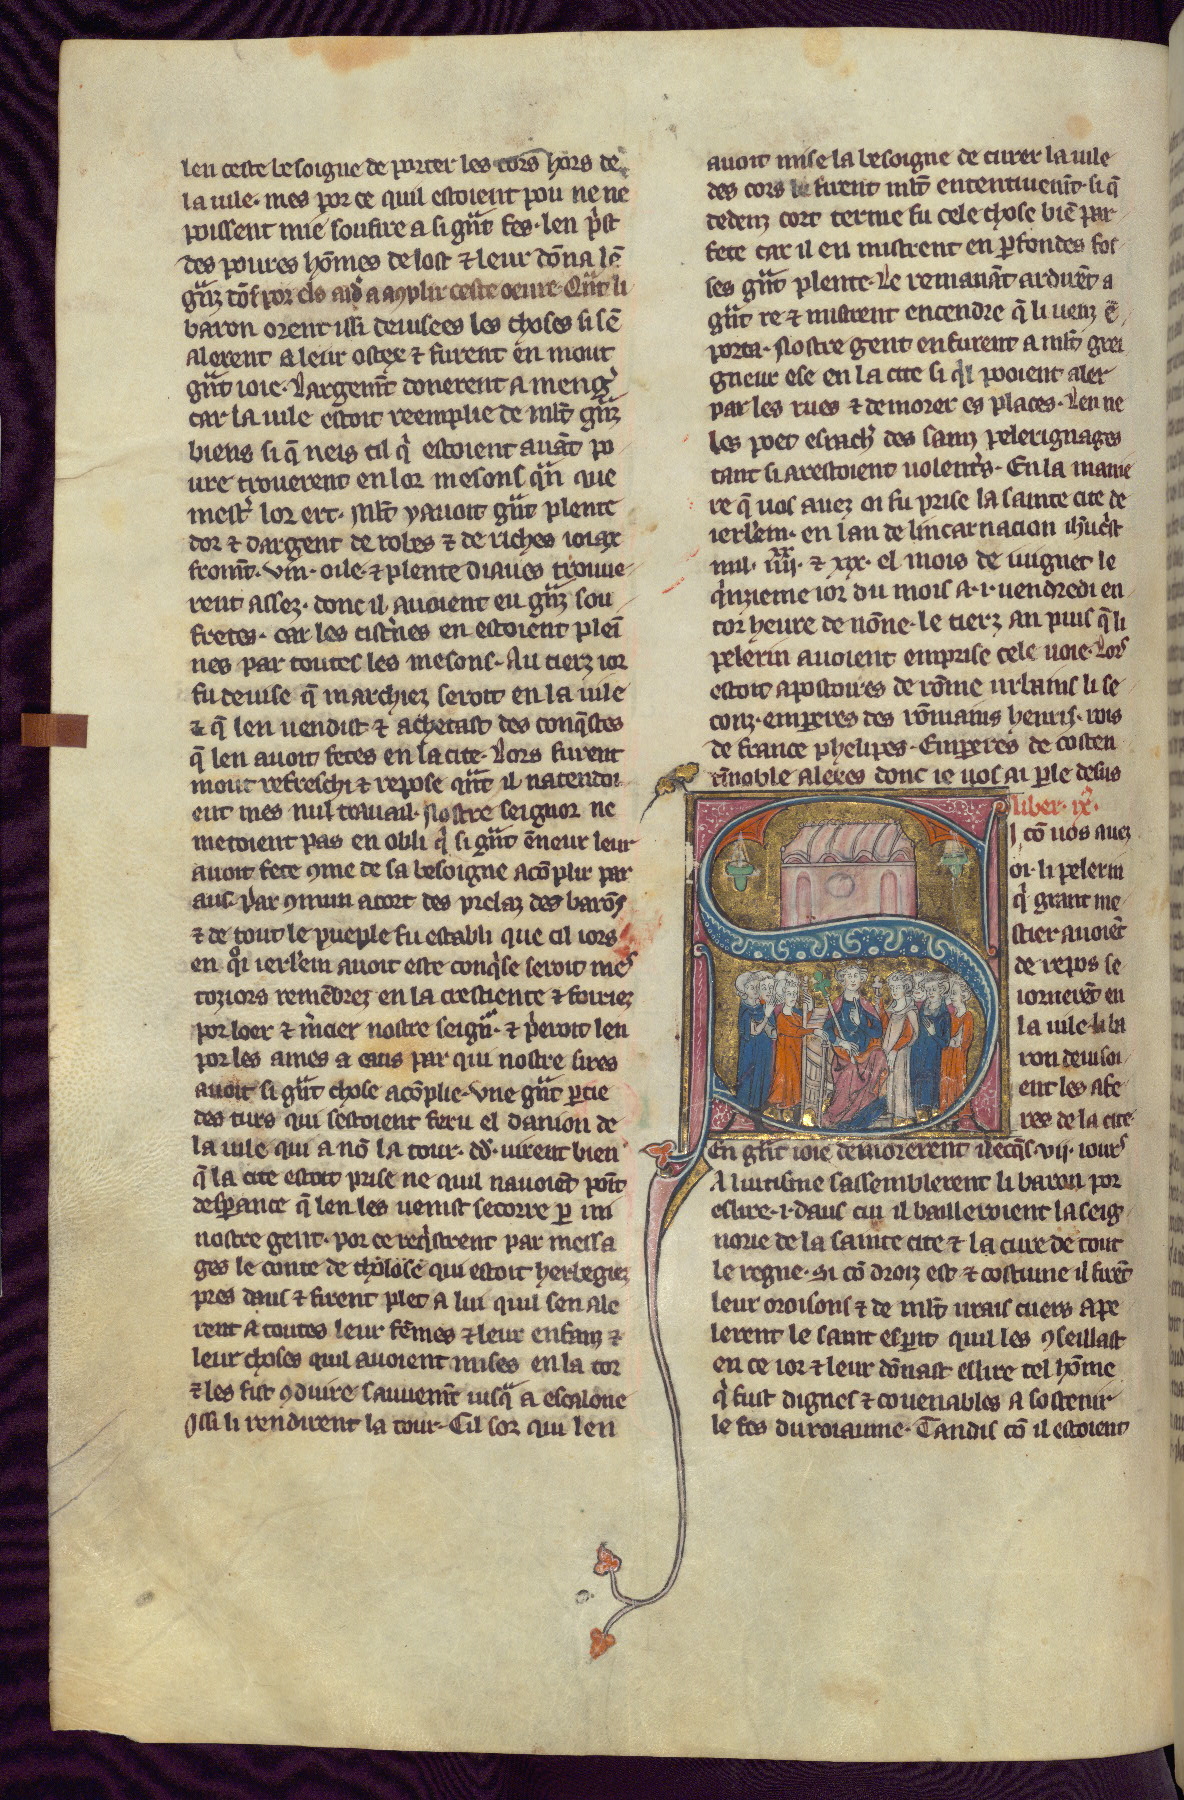 len ceste besoigne de porter les cors hors de
la uile· mes por ce quil estoient pou ne ne
poissent mie soufire a si gũt fes· len p̃st
des poures hõmes de lost ⁊ leur dõna lẽ
baron orent issi deuisees les choses si sẽ
alerent a leur ostex ⁊ furent en mout
gũt ioie· Largemẽt donerent a meng̾
car la uile estoit reemplie de ml̃t gũz
biens si q̃ neis cil q̾ estoient auãt po
ure trouerent en lor mesons qũ que
mest̾ lor ert· Ml̃t y auoit gũt plente
dor ⁊ dargent de robes ⁊ de riches ioiax
fromẽt· vin· oile· ⁊ plente diaues trouue
rent assez· donc il auoient eu gũz sou
fretes· car les cist̾nes en estoient pleĩ
nes par toutes les mesons· Au tierz ior
fu deuise q̃ marchiez seroit en la uile
⁊ q̃ len uendist ⁊ achetast des conq̃stes
q̃ len auoit fetes en la cite· Lors furent
mout refreschi ⁊ repose qũt il natendoi
ent mes nul trauail· Nostre seignor ne
metoient pas en obli q̾ si gũt ẽneur leur
auoit fete ꝯme de sa besoigne acõplir par
aus· Par ꝯmun acort des prelaz des barõs
⁊ de tout le pueple fu establi que cil iors
en q̾i ierlẽm auoit este conq̾se seroit mes
toziors remẽbrez en la crestiente ⁊ foiriez
por loer ⁊ m̾cier nostre seign̾· ⁊ p̾eroit len
por les ames a ceus par qui nostre sires
auoit si gũt chose acõplie· Vne gũt ꝑtie
des turs qui sestoient feru el danion de
la uile qui a nõ la tour· dd̾· uirent bien
q̃ la cite estoit prise ne quil nauoiẽt poĩt
desꝑance q̃ len les uenist secorre ꝑ mi
nostre gent· por ce req̾strent par messa
ges le conte de tholose qui estoit herbegiez
pres daus ⁊ firent plet a lui quil sen ale
rent a toutes leur fẽmes ⁊ leur enfanz ⁊
leur choses quil auoient mises en la tor
⁊ les fist ꝯduire sauuemẽt iusq̃ a escalone
Issi li rendirent la tour· Cil sor qui len
auoit mise la besoigne de curer la uile
des cors le firent ml̃t ententiuemẽt· si q̃
dedenz cort terme fu cele chose biẽ par
fete car il en mistrent en ꝑfondes fos
ses gũt plente· Le remanãt arduẽt a
gũt re ⁊ mistrent encendre q̃ li uenz ẽ
porta· Nostre gent en furent a ml̃t grei
gneur ese en la cite si q̾l pooient aler
par les rues ⁊ demorer es places· Len ne
les poet esrach̾ des sainz pelerignages
tant si arestoient uolent̾s· En la manie
re q̃ uos auez oi fu prise la sainte cite de
ierlẽm· en lan de lincarnacion ihũcrist
mil· iiii͛͛· ⁊ xix· el mois de iugnet le
q̾nzieme ior du mois a·i·uendredi en
tor heure de nõne· le tierz an puis q̃ li
pelerin auoient emprise cele uoie· Lors
estoit apostoires de rõme urbains li se
conz· emperes des rõmains henris· rois
de france phelipes· Emperes de costen
tĩnoble alexes donc ie uos ai ꝑle desus
Liber· ix·
SI cõ uos auez
oi· li pelerin
q̾ grant me
stier auoiẽt
de repos se
iornerẽt en
la uile· li ba
ron deuisoi
ent les afe
res de la cite·
En gũt ioie demorerent ilecq̃s·vij·iours
A luitisme sassemblerent li baron por
eslire·i·daus cui il bailleroient la seig
norie de la sainte cite ⁊ la cure de tout
le regne· Si cõ droiz est ⁊ costume il firẽt
leur oroisons ⁊ de ml̃t urais cuers ape
lerent le saint esꝑit quil les ꝯseillast
en ce ior ⁊ leur dõnast eslire tel hõme
q̾ fust dignes ⁊ couenables a sostenir
le fes du roiaume· Tandis cõ il estoient